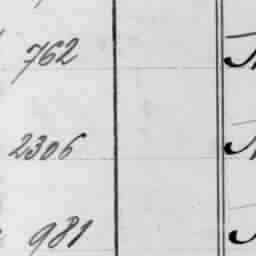 762
2306
981